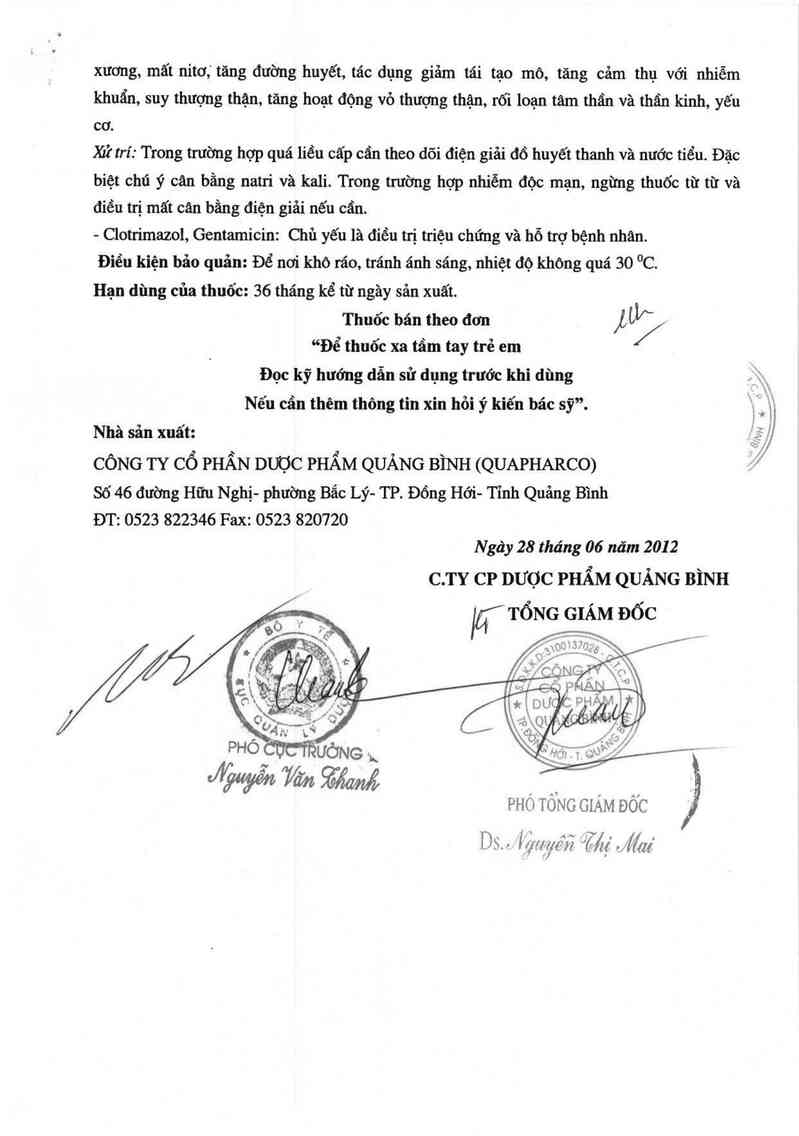 xương, mất nitơ, tăng đường huyết, tác dụng giảm tái tạo mô, tăng cảm thụ với nhiễm
khuẩn, suy thượng thận, tăng hoạt động vỏ thượng thận, rối loạn tâm thần và thần kinh, yếu
cơ.
Xử trí: Trong trường hợp quá liều cấp cần theo dõi điện giải đồ huyết thanh và nước tiểu. Đặc
biệt chú ý cân bằng natri và kali. Trong trường hợp nhiễm độc mạn, ngừng thuốc từ từ và
điều trị mất cân bằng điện giải nếu cần.
- Clotrimazol, Gentamicin: Chủ yếu là điều trị triệu chứng và hỗ trợ bệnh nhân.
Điều kiện bảo quản: Để nơi khô ráo, tránh ánh sáng, nhiệt độ không quá 30 ⁰C.
Hạn dùng của thuốc: 36 tháng kể từ ngày sản xuất.
Thuốc bán theo đơn
“Để thuốc xa tầm tay trẻ em
Đọc kỹ hướng dẫn sử dụng trước khi dùng
Nếu cần thêm thông tin xin hỏi ý kiến bác sỹ”.
Nhà sản xuất:
CÔNG TY CỔ PHẦN DƯỢC PHẨM QUẢNG BÌNH (QUAPHARCO)
Số 46 đường Hữu Nghị- phường Bắc Lý- TP. Đồng Hới- Tỉnh Quảng Bình
ĐT: 0523 822346 Fax: 0523 820720
Ngày 28 tháng 06 năm 2012
C.TY CP DƯỢC PHẨM QUẢNG BÌNH
KT TỔNG GIÁM ĐỐC
BỘ Y TẾ
CỤC QUẢN LÝ DƯỢC
S.Đ.K.K.D:3100137028 - C.T.C.P
CÔNG TY
CỔ PHẦN
DƯỢC PHẨM
QUẢNG BÌNH
TP ĐỒNG HỚI - T. QUẢNG BÌNH
PHÓ CỤC TRƯỞNG
Nguyễn Văn Thanh
PHÓ TỔNG GIÁM ĐỐC
Ds. Nguyễn Thị Mai